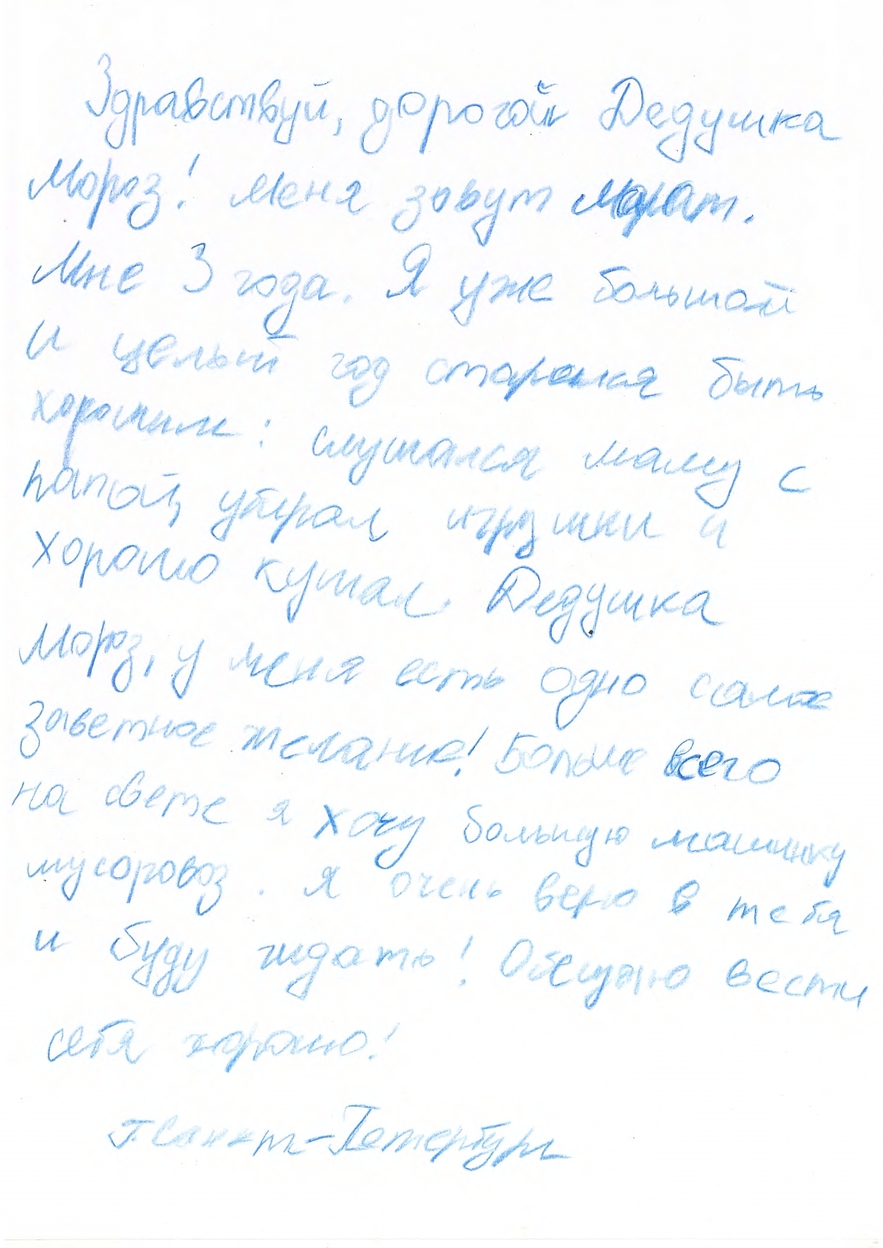 Здравствуй, дорогой Дедушка
Мороз! Меня зовут Марат.
Мне 3 года. Я уже большой
и целый год старался быть
хорошим: слушался маму с
папой, убирал игрушки и
хорошо кушал. Дедушка
Мороз, у меня есть одно самое
заветное желание! Больше всего
на свете я хочу большую машинку
мусоровоз. Я очень верю в тебя
и буду ждать! Обещаю вести
себя хорошо!
г. Санкт-Петербург